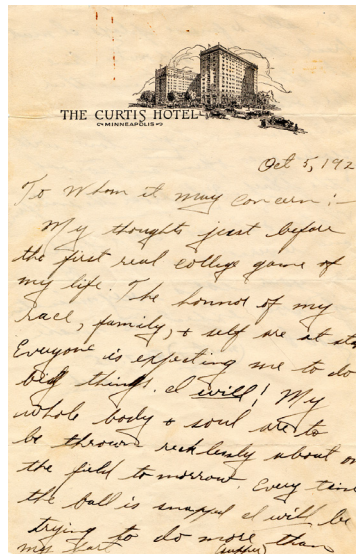 THE CURTIS HOTEL
MINNEAPOLIS
Oct 5, 192
To Whom it may concern :-
My thoughts just before
the first real college game of
my life. The honnor of my
race, family, & self are at sta
Everyone is expecting me to do
big things. I will! My
whole body & soul are to
be thrown recklessly about on
the field to morrow. Every time
the ball is snapped I will be
trying to do more than
my part.